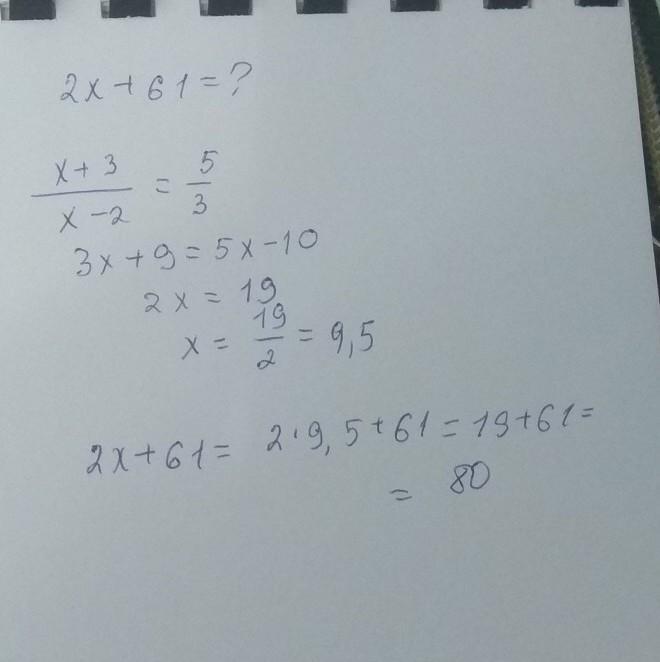 2x+61=?
x+3 / x-2 = 5/3
3x+9=5x-10
2x=19
x=19/2=9,5
2x+61= 2·9,5+61=19+61=
= 80